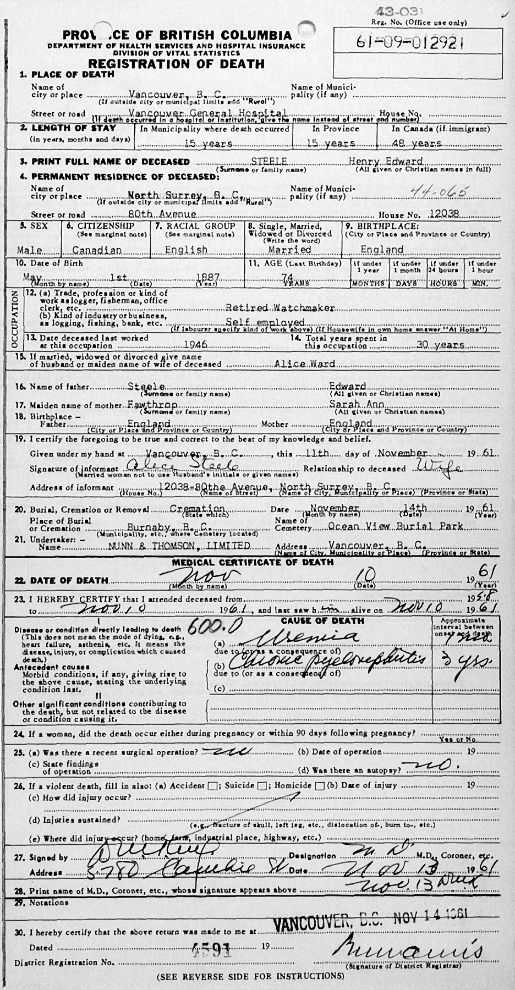 43-031
Reg. No. (Office use only)
PROVINCE OF BRITISH COLUMBIA
DEPARTMENT OF HEALTH SERVICES AND HOSPITAL INSURANCE
DIVISION OF VITAL STATISTICS
REGISTRATION OF DEATH
61-09-012921
1. PLACE OF DEATH
Name of city or place Vancouver, B. C. Name of Municipality (if any)
(If outside city or municipal limits add "Rural")
Street or road Vancouver General Hospital House No.
(If death occurred in a hospital or institution, give the name instead of street and number)
2. LENGTH OF STAY (in years, months and days) In Municipality where death occurred 15 years In Province 15 years In Canada (if immigrant) 48 years
3. PRINT FULL NAME OF DECEASED STEELE Henry Edward
(Surname or family name) (All given or Christian names in full)
4. PERMANENT RESIDENCE OF DECEASED:
Name of city or place North Surrey, B. C. Name of Municipality (if any) 44-065
(If outside city or municipal limits add "Rural")
Street or road 80th Avenue House No. 12038
5. SEX Male 6. CITIZENSHIP (See marginal note) Canadian 7. RACIAL GROUP (See marginal note) English 8. Single, Married, Widowed or Divorced (Write the word) Married 9. BIRTHPLACE: (City or Place and Province or Country) England
10. Date of Birth May 1st 1887 11. AGE (Last Birthday) 74 If under 1 year If under 1 month If under 24 hours If under 1 hour
(Month by name) (Date) (Year) YEARS MONTHS DAYS HOURS MIN.
OCCUPATION
12. (a) Trade, profession or kind of work as logger, fisherman, office clerk, etc. Retired Watchmaker
(b) Kind of industry or business, as logging, fishing, bank, etc. Self employed
(If labourer specify kind of work above) (If Housewife in own home answer "At Home")
13. Date deceased last worked at this occupation 1946 14. Total years spent in this occupation 30 years
15. If married, widowed or divorced give name of husband or maiden name of wife of deceased Alice Ward
16. Name of father Steele Edward
(Surname or family name) (All given or Christian names)
17. Maiden name of mother Fawthrop Sarah Ann
(Surname or family name) (All given or Christian names)
18. Birthplace — Father England Mother England
(City or Place and Province or Country) (City or Place and Province or Country)
19. I certify the foregoing to be true and correct to the best of my knowledge and belief.
Given under my hand at Vancouver, B. C., this 11th day of November 1961
Signature of informant Alice Steele Relationship to deceased Wife
(Married woman not to use Husband's initials or given names)
Address of informant 12038-80the Avenue, North Surrey, B. C.
(House No.) (Name of Street) (Name of City, Municipality or Place) (Province or State)
20. Burial, Cremation or Removal Cremation Date November 14th 1961
(State which) (Month by name) (Date) (Year)
Place of Burial or Cremation Burnaby, B. C. Name of Cemetery Ocean View Burial Park
(Municipality, etc., where Cemetery located)
21. Undertaker:— Name NUNN & THOMSON, LIMITED Address Vancouver, B. C.
(Name of City, Municipality or Place) (Province or State)
MEDICAL CERTIFICATE OF DEATH
22. DATE OF DEATH Nov 10 1961
(Month by name) (Date) (Year)
23. I HEREBY CERTIFY that I attended deceased from 1958
to Nov 10 1961, and last saw him alive on Nov 10 1961
I CAUSE OF DEATH Approximate interval between onset and death
Disease or condition directly leading to death 600.0 (a) Uremia
(This does not mean the mode of dying, e.g., heart failure, asthenia, etc. It means the disease, injury, or complication which caused death.)
due to (or as a consequence of)
Antecedent causes (b) Chronic pyelonephritis 3 yrs
Morbid conditions, if any, giving rise to the above cause, stating the underlying condition last.
due to (or as a consequence of)
(c)
II
Other significant conditions contributing to the death, but not related to the disease or condition causing it.
24. If a woman, did the death occur either during pregnancy or within 90 days following pregnancy?
Yes or No
25. (a) Was there a recent surgical operation? no (b) Date of operation 19
(c) State findings of operation (d) Was there an autopsy? no.
26. If a violent death, fill in also: (a) Accident ; Suicide ; Homicide (b) Date of injury 19
(c) How did injury occur?
(d) Injuries sustained?
(e.g., fracture of skull, left leg, etc., dislocation of, burn to, etc.)
(e) Where did injury occur? (home, farm, industrial place, highway, etc.)
27. Signed by Designation M.D. M.D., Coroner, etc.
Address 5780 Cambie St Date Nov 13 1961
28. Print name of M.D., Coroner, etc., whose signature appears above Nov 13
29. Notations
30. I hereby certify that the above return was made to me at VANCOUVER, B.C. NOV 14 1961
Dated 19
4591
District Registration No. (Signature of District Registrar)
(SEE REVERSE SIDE FOR INSTRUCTIONS)